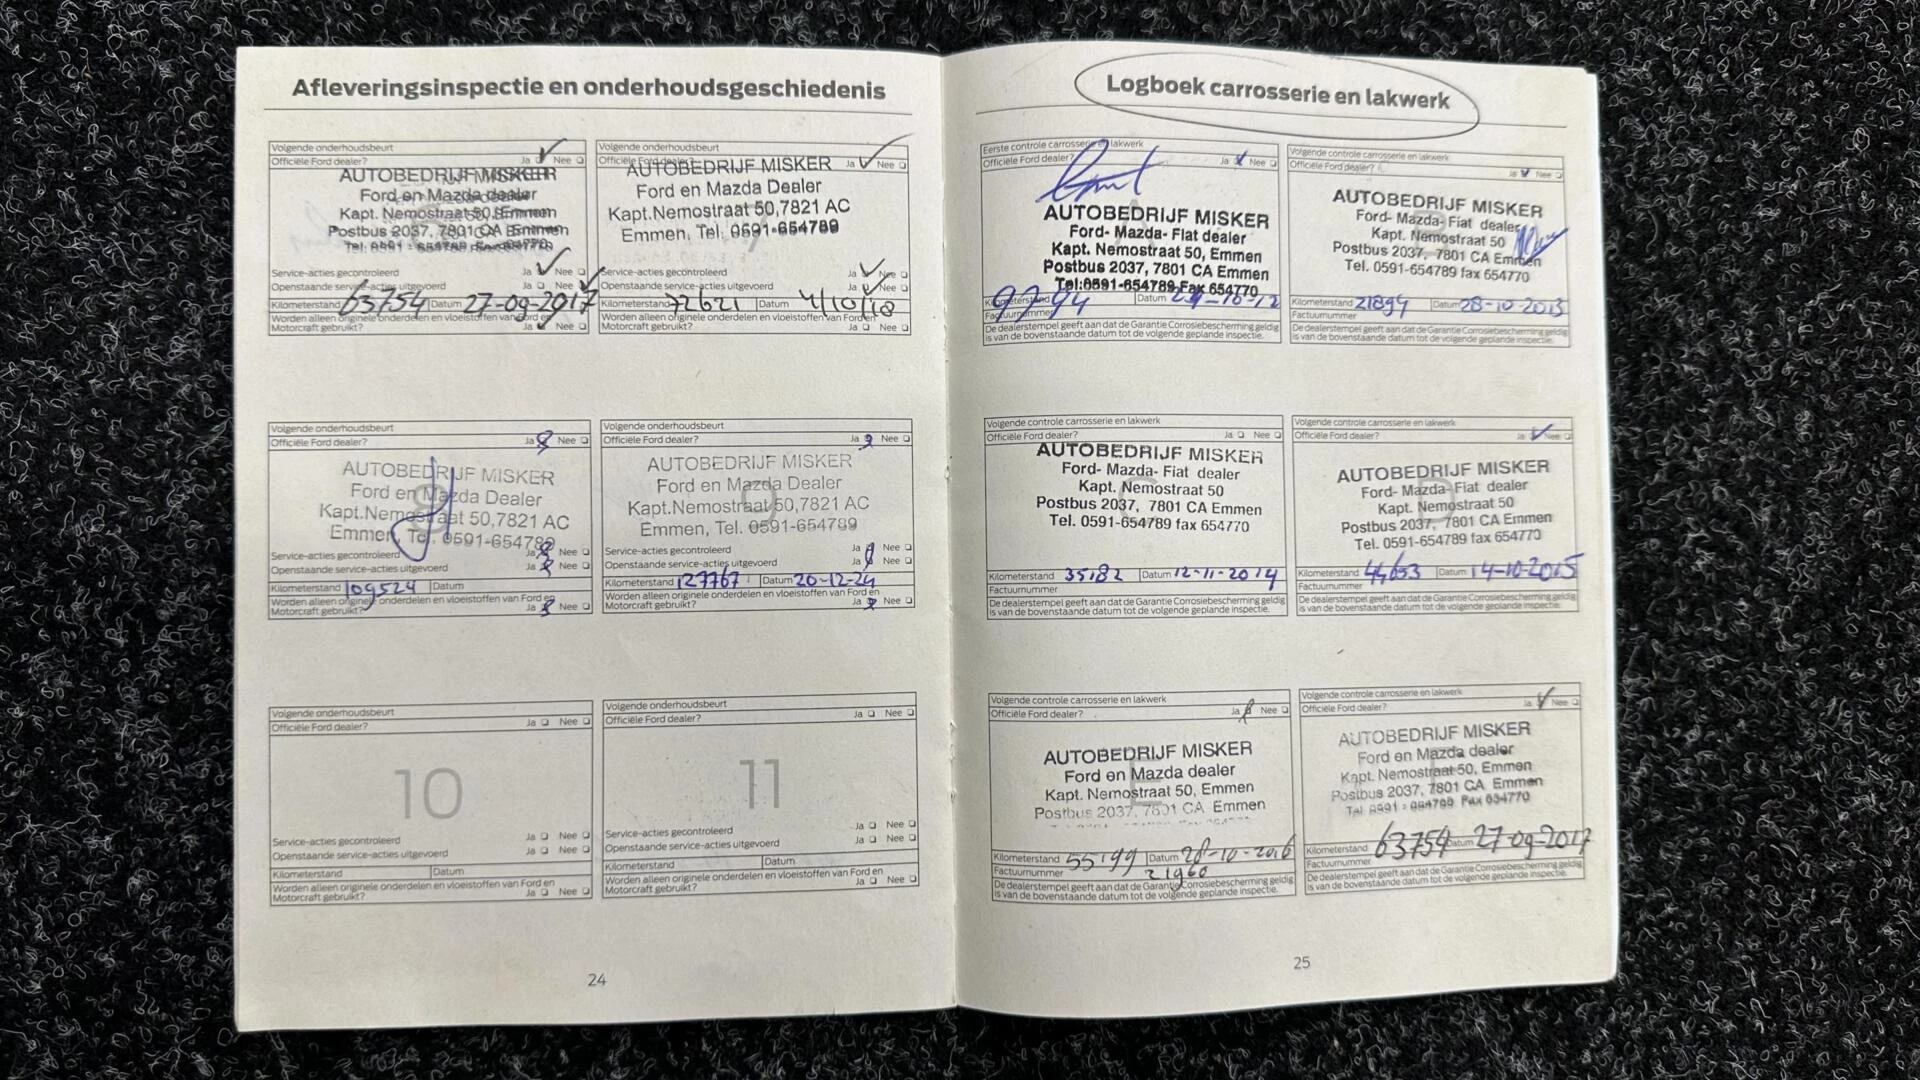 Afleveringsinspectie en onderhoudsgeschiedenis
Volgende onderhoudsbeurt
Officiële Ford dealer? Ja Nee
AUTOBEDRIJF MISKER
Ford en Mazda dealer
Kapt. Nemostraat 50, Emmen
Postbus 2037, 7801 CA Emmen
Tel. 0591 - 654789 Fax 654770
Service-acties gecontroleerd Ja Nee
Openstaande service-acties uitgevoerd Ja Nee
Kilometerstand 63754 Datum 27-09-2017
Worden alleen originele onderdelen en vloeistoffen van Ford en
Motorcraft gebruikt? Ja Nee
Volgende onderhoudsbeurt
Officiële Ford dealer? Ja Nee
AUTOBEDRIJF MISKER
Ford en Mazda Dealer
Kapt.Nemostraat 50,7821 AC
Emmen, Tel. 0591-654789
7
Service-acties gecontroleerd Ja Nee
Openstaande service-acties uitgevoerd Ja Nee
Kilometerstand 72621 Datum 4/10/18
Worden alleen originele onderdelen en vloeistoffen van Ford en
Motorcraft gebruikt? Ja Nee
Volgende onderhoudsbeurt
Officiële Ford dealer? Ja Nee
AUTOBEDRIJF MISKER
Ford en Mazda Dealer
Kapt.Nemostraat 50,7821 AC
Emmen, Tel. 0591-654789
Service-acties gecontroleerd Ja Nee
Openstaande service-acties uitgevoerd Ja Nee
Kilometerstand 109524 Datum
Worden alleen originele onderdelen en vloeistoffen van Ford en
Motorcraft gebruikt? Ja Nee
Volgende onderhoudsbeurt
Officiële Ford dealer? Ja Nee
AUTOBEDRIJF MISKER
Ford en Mazda Dealer
Kapt.Nemostraat 50,7821 AC
Emmen, Tel. 0591-654789
9
Service-acties gecontroleerd Ja Nee
Openstaande service-acties uitgevoerd Ja Nee
Kilometerstand 127767 Datum 20-12-24
Worden alleen originele onderdelen en vloeistoffen van Ford en
Motorcraft gebruikt? Ja Nee
Volgende onderhoudsbeurt
Officiële Ford dealer? Ja Nee
10
Service-acties gecontroleerd Ja Nee
Openstaande service-acties uitgevoerd Ja Nee
Kilometerstand Datum
Worden alleen originele onderdelen en vloeistoffen van Ford en
Motorcraft gebruikt? Ja Nee
Volgende onderhoudsbeurt
Officiële Ford dealer? Ja Nee
11
Service-acties gecontroleerd Ja Nee
Openstaande service-acties uitgevoerd Ja Nee
Kilometerstand Datum
Worden alleen originele onderdelen en vloeistoffen van Ford en
Motorcraft gebruikt? Ja Nee
24
Logboek carrosserie en lakwerk
Eerste controle carrosserie en lakwerk
Officiële Ford dealer? Ja Nee
A
AUTOBEDRIJF MISKER
Ford- Mazda- Fiat dealer
Kapt. Nemostraat 50, Emmen
Postbus 2037, 7801 CA Emmen
Tel:0591-654789 Fax 654770
Kilometerstand Datum
Factuurnummer
De dealerstempel geeft aan dat de Garantie Corrosiebescherming geldig
is van de bovenstaande datum tot de volgende geplande inspectie.
Volgende controle carrosserie en lakwerk
Officiële Ford dealer? Ja Nee
AUTOBEDRIJF MISKER
Ford- Mazda- Fiat dealer
Kapt. Nemostraat 50
Postbus 2037, 7801 CA Emmen
Tel. 0591-654789 fax 654770
Kilometerstand 21894 Datum 28-10-2013
Factuurnummer
De dealerstempel geeft aan dat de Garantie Corrosiebescherming geldig
is van de bovenstaande datum tot de volgende geplande inspectie.
Volgende controle carrosserie en lakwerk
Officiële Ford dealer? Ja Nee
AUTOBEDRIJF MISKER
Ford- Mazda- Fiat dealer
Kapt. Nemostraat 50
Postbus 2037, 7801 CA Emmen
Tel. 0591-654789 fax 654770
C
Kilometerstand 35182 Datum 12-11-2014
Factuurnummer
De dealerstempel geeft aan dat de Garantie Corrosiebescherming geldig
is van de bovenstaande datum tot de volgende geplande inspectie.
Volgende controle carrosserie en lakwerk
Officiële Ford dealer? Ja Nee
AUTOBEDRIJF MISKER
Ford- Mazda- Fiat dealer
Kapt. Nemostraat 50
Postbus 2037, 7801 CA Emmen
Tel. 0591-654789 fax 654770
D
Kilometerstand 44653 Datum 14-10-2015
Factuurnummer
De dealerstempel geeft aan dat de Garantie Corrosiebescherming geldig
is van de bovenstaande datum tot de volgende geplande inspectie.
Volgende controle carrosserie en lakwerk
Officiële Ford dealer? Ja Nee
AUTOBEDRIJF MISKER
Ford en Mazda dealer
Kapt. Nemostraat 50, Emmen
Postbus 2037, 7801 CA Emmen
E
Kilometerstand 55199 Datum 28-10-2016
Factuurnummer 21960
De dealerstempel geeft aan dat de Garantie Corrosiebescherming geldig
is van de bovenstaande datum tot de volgende geplande inspectie.
Volgende controle carrosserie en lakwerk
Officiële Ford dealer? Ja Nee
AUTOBEDRIJF MISKER
Ford en Mazda dealer
Kapt. Nemostraat 50, Emmen
Postbus 2037, 7801 CA Emmen
Tel. 0591 - 654789 Fax 654770
Kilometerstand 63754 Datum 27-09-2017
Factuurnummer
De dealerstempel geeft aan dat de Garantie Corrosiebescherming geldig
is van de bovenstaande datum tot de volgende geplande inspectie.
25